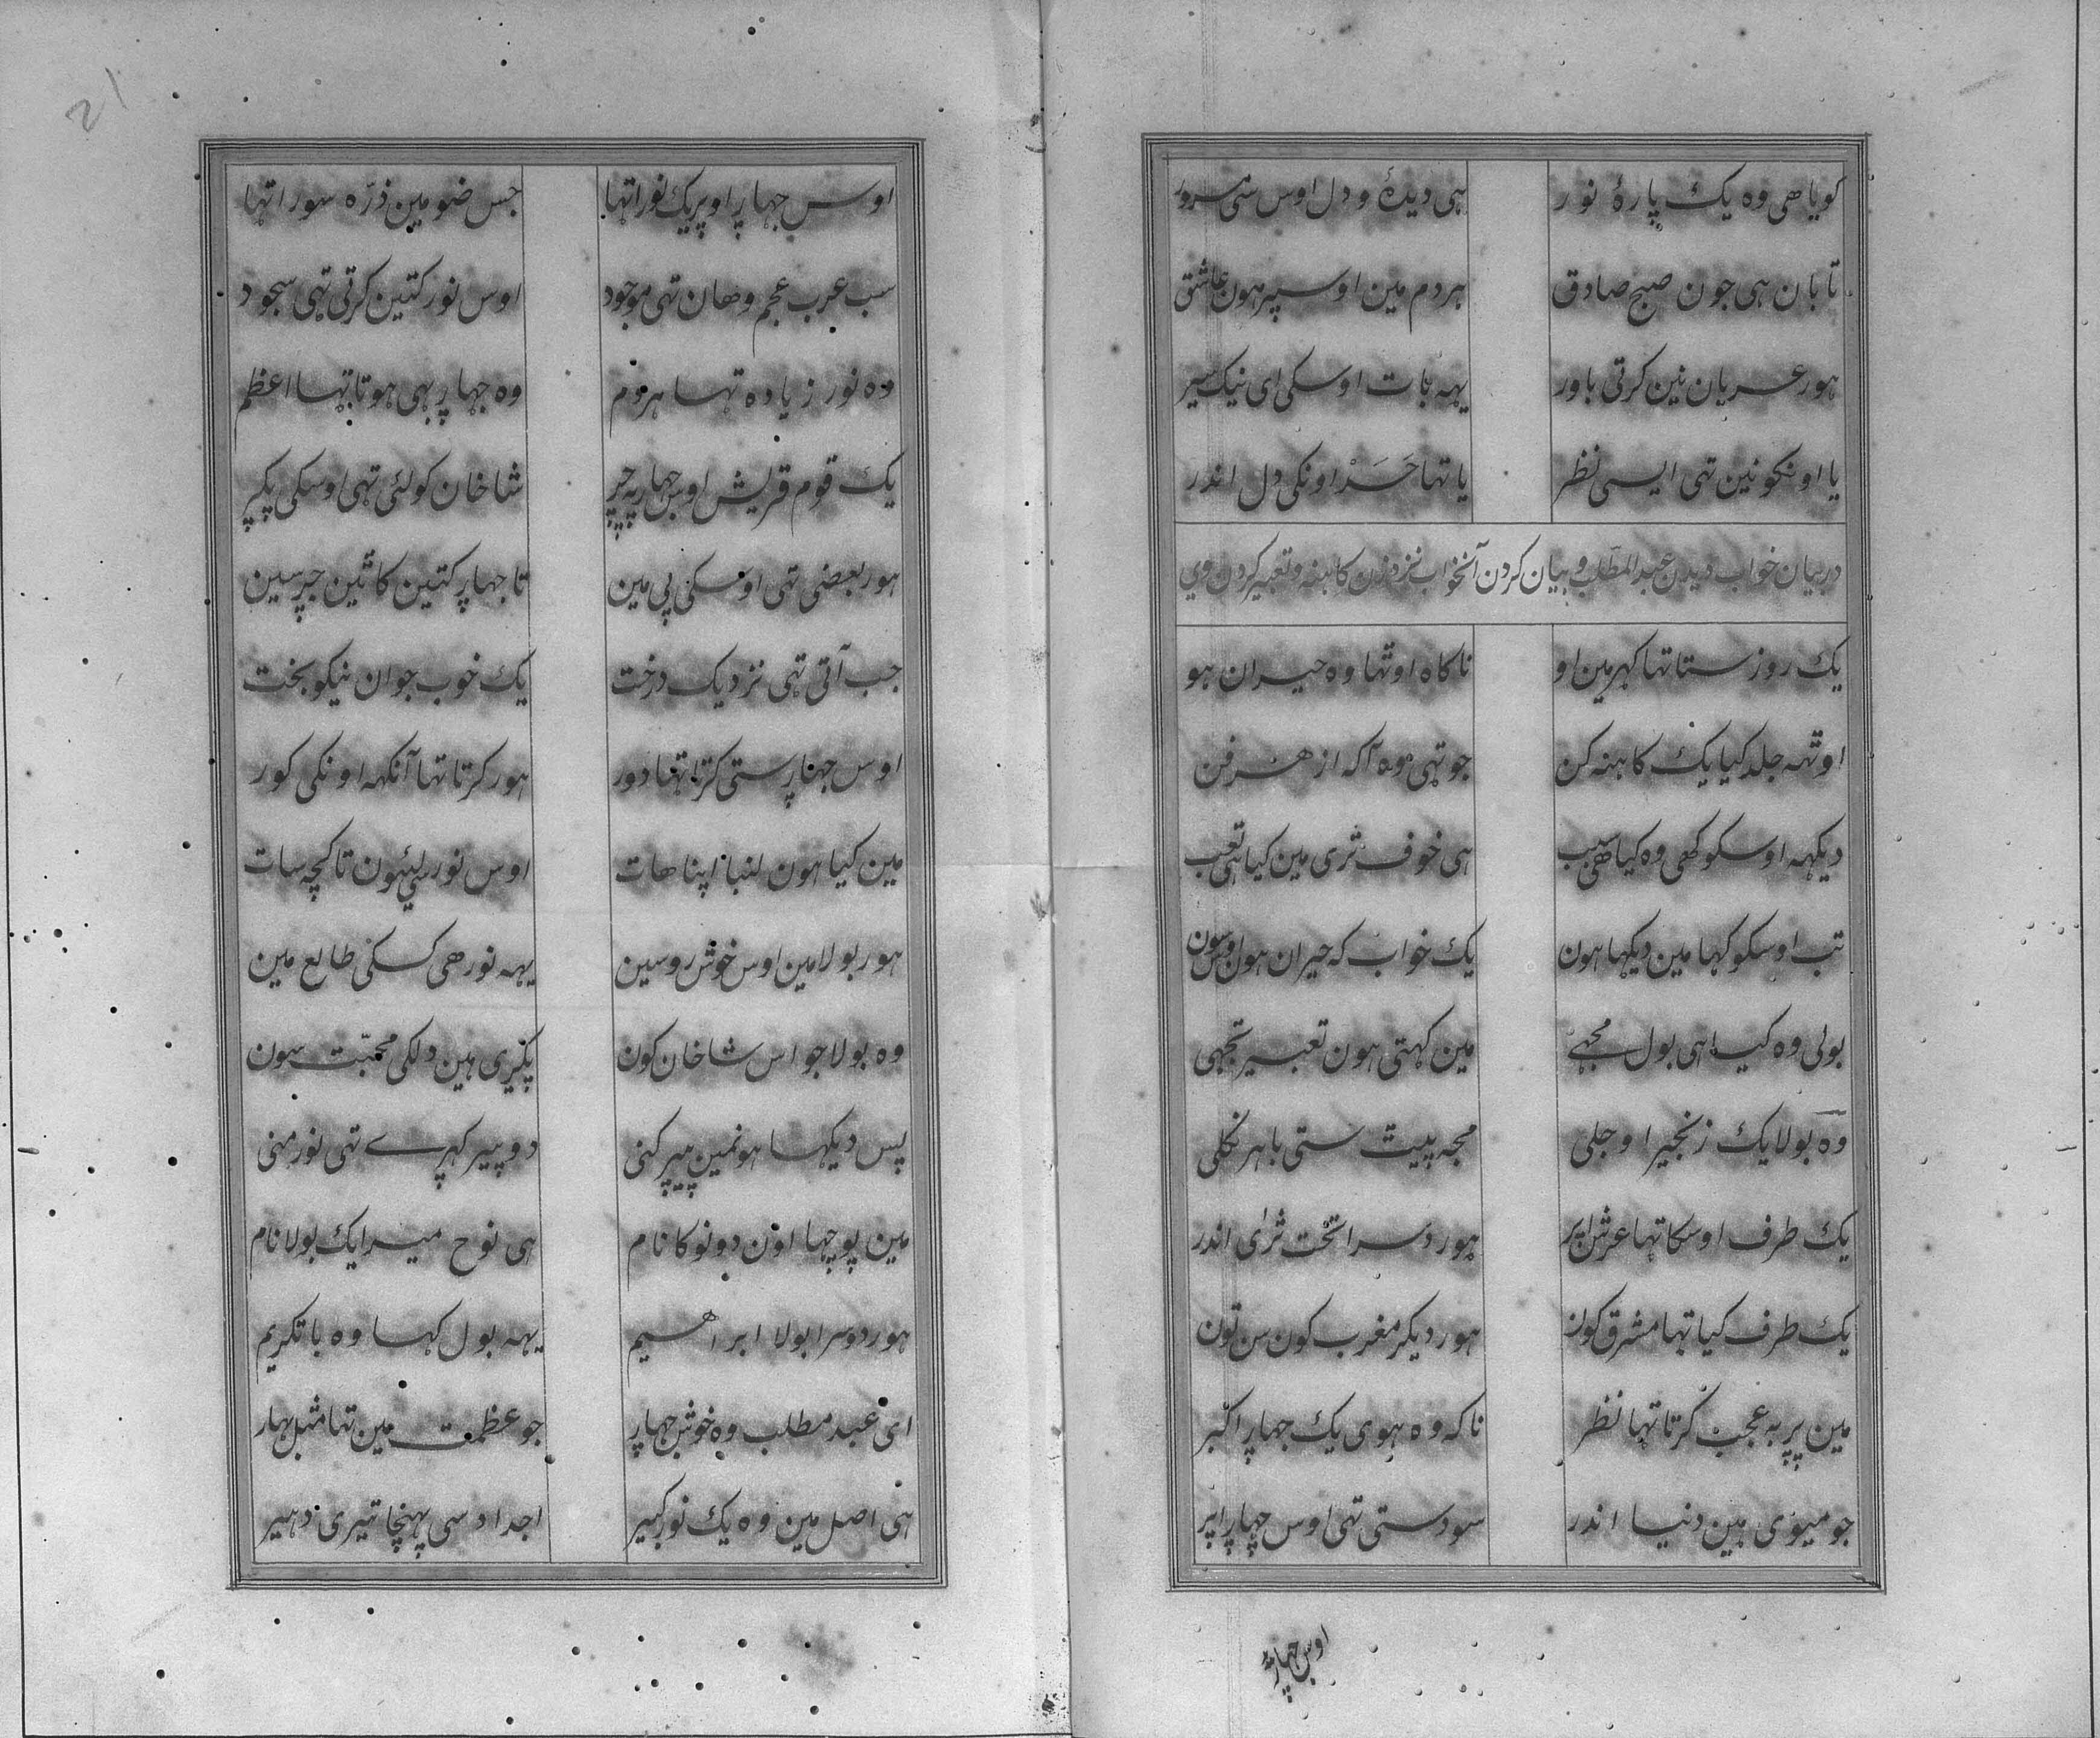 کویا هی وه یک پارهٔ نور ہی دیدهٔ و دل اوس ستی مسرور
تابان ہی جون صبح صادق ہردم مین اوسپر ہون عاشق
ہور عربان نین کرتی باور یہہ بات اوسکی ای نیک سیر
یا اونکو نین تہی ایسی نظر یا تہا حَسَدْ اونکی دل اندر
در بیان خواب دیدن عبد المطلب و بیان کردن آنخواب نزد زن کاهنه و تعبیر کردن وی
یک روز ستا تہا کہر مین او ناکاه اوتہا وه حیران ہو
اوتہہ جلد کیا یک کاہنه کن جو تہی وه آکه از هر فن
دیکہہ اوسکو کهی وه کیا هی سبب ہی خوف تری مین کیا ہی تعب
تب اوسکو کہا مین دیکہا ہون یک خواب که حیران ہون اوس سون
بولی وه کیا ہی بول مجہے مین کہتی ہون تعبیر تجہی
وه بولا یک زنجیر اوجلی مجہ پیت ستی باہر نکلی
یک طرف اوسکا تہا عرش اپر ہور دسرا تحت ثری اندر
یک طرف کیا تہا مشرق کون ہور دیکر مغرب کون سن تون
مین پر به عجب کرتا تہا نظر ناکه وه ہوی یک جہاڑ اکبر
جو میوی ہین دنیا اندر سو دستی تہی اوس جہاڑ اپر
اوس جہاڑ
اوس جہاڑ اوپر یک نور اتہا جس ضو مین ذرّه سور اتہا
سب عرب عجم وهان تہی موجود اوس نور کتین کرتی تہی سجود
وه نور زیاده تہا ہردم وه جہاڑ بہی ہوتا تہا اعظم
یک قوم قریش اوس جہاڑ په چڑ شاخان کو لئی تہی اوسکی پکڑ
ہور بعضی تہی اوسکی پی مین تا جہاڑ کتین کاتین جڑ سین
جب آتی تہی نزدیک درخت یک خوب جوان نیکو بخت
اوس جہاڑ ستی کرتا تہا دور ہور کرتا تہا آنکہه اونکی کور
مین کیا ہون لنبا اپنا هات اوس نور سی لیئون تا کچہ سات
ہور بولا مین اوس خوش رو سین یہہ نور هی کسکی طالع مین
وه بولا جو اس شاخان کون پکڑی ہین دلکی محبّت سون
پس دیکہا ہون مین پیڑ کنی دو پیر کہڑے تہی نورمنی
مین پوچہا اون دونو کا نام ہی نوح میرا یک بولا نام
ہور دوسرا بولا ابراهیم یہہ بول کہا وه باتکریم
ای عبد مطلب وه خوش جہاڑ جو عظمت مین تہا مثل پہاڑ
ہی اصل مین وه یک نور کبیر اجداد سی پہنچا تیری دہیر